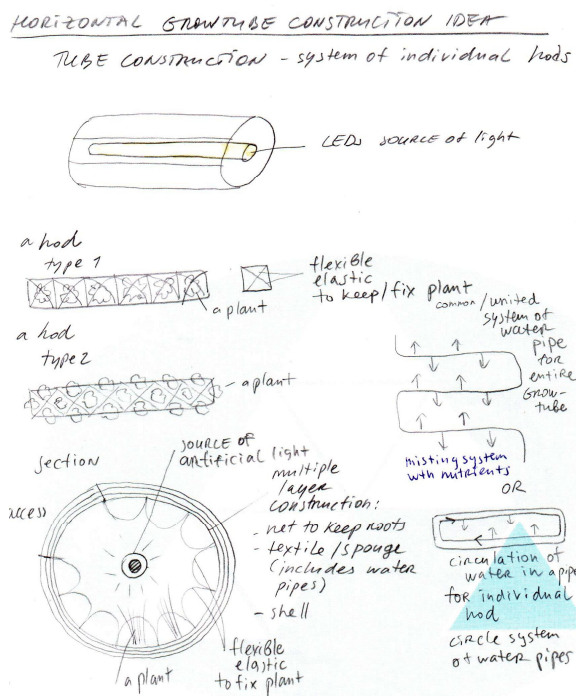 HORIZONTAL GROWTUBE CONSTRUCTION IDEA
TUBE CONSTRUCTION - system of individual hods
LEDs SOURCE of light
a hod
type 1
a plant
flexible
elastic
to keep/fix plant
a hod
type 2
a plant
common/united
system of
water
pipe
for
entire
GROW-
tube
misting system
with nutrients
OR
circulation of
water in a pipe
for individual
hod
circle system
of water pipes
section
access
SOURCE OF
artificial light
multiple
layer
construction:
- net to keep roots
- textile/sponge
(includes water
pipes)
- shell
flexible
elastic
to fix plant
a plant